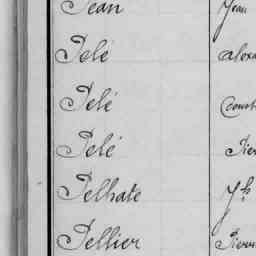 Jean Jean
Pelé Alexa
Pelé Const
Pelé Pier
Pelhate Jh
Pellier Pierr